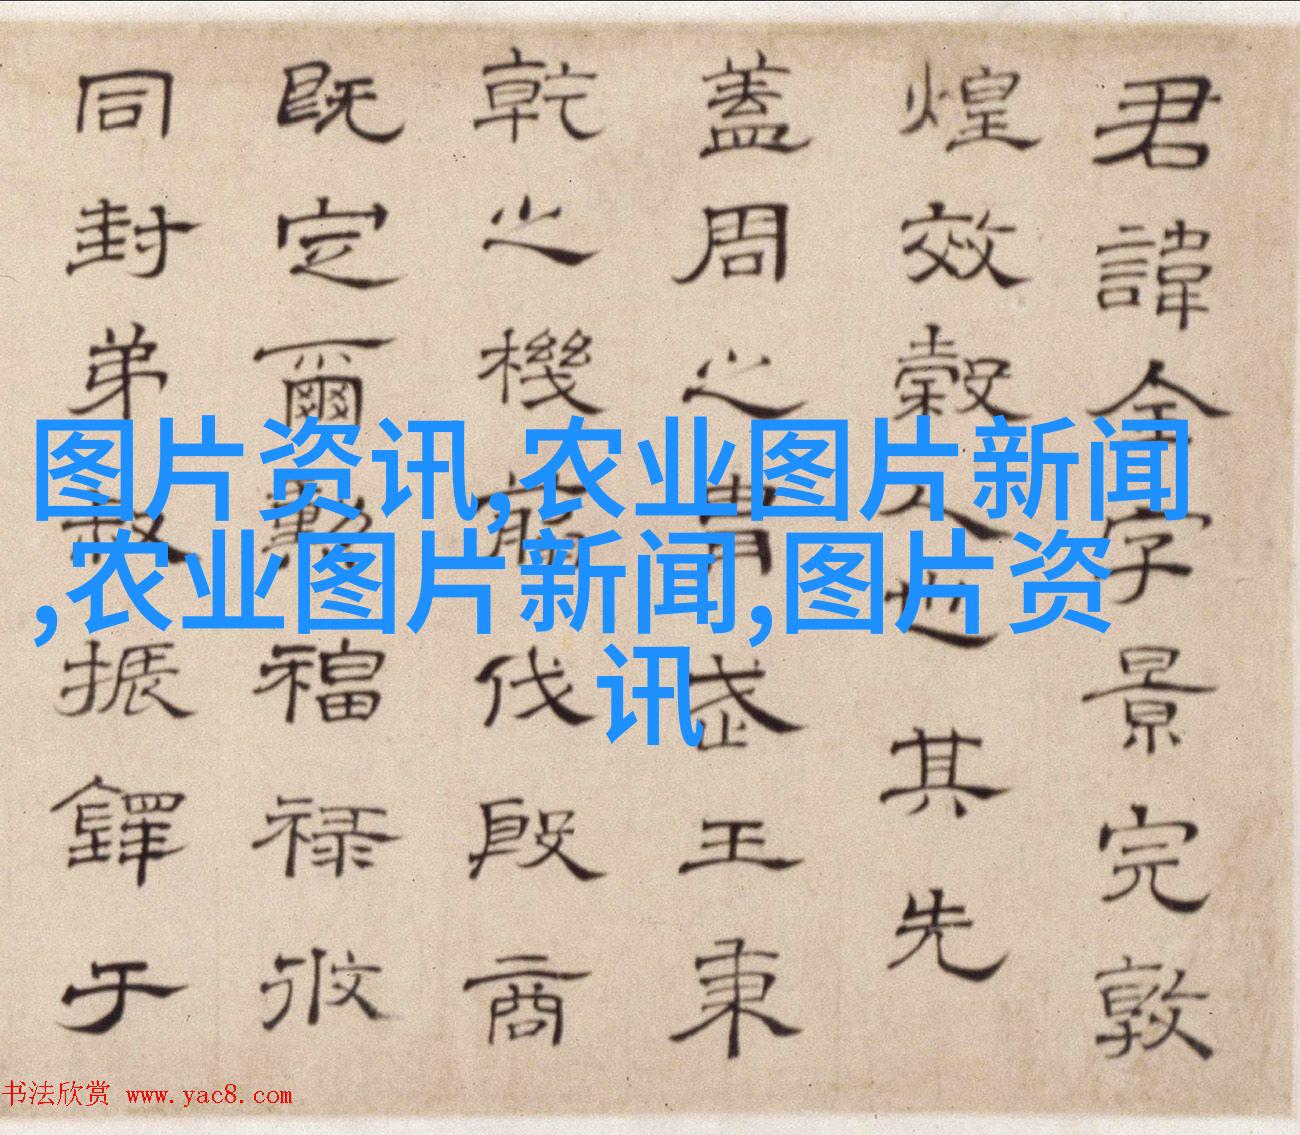 君諱全字景完敦
煌效穀人也其先
蓋周之胄武王秉
乾之機翦伐殷商
既定爾勳福禄攸
同封弟叔振鐸于
图片资讯,农业图片新闻
,农业图片新闻,图片资
讯
书法欣赏 www.yac8.com